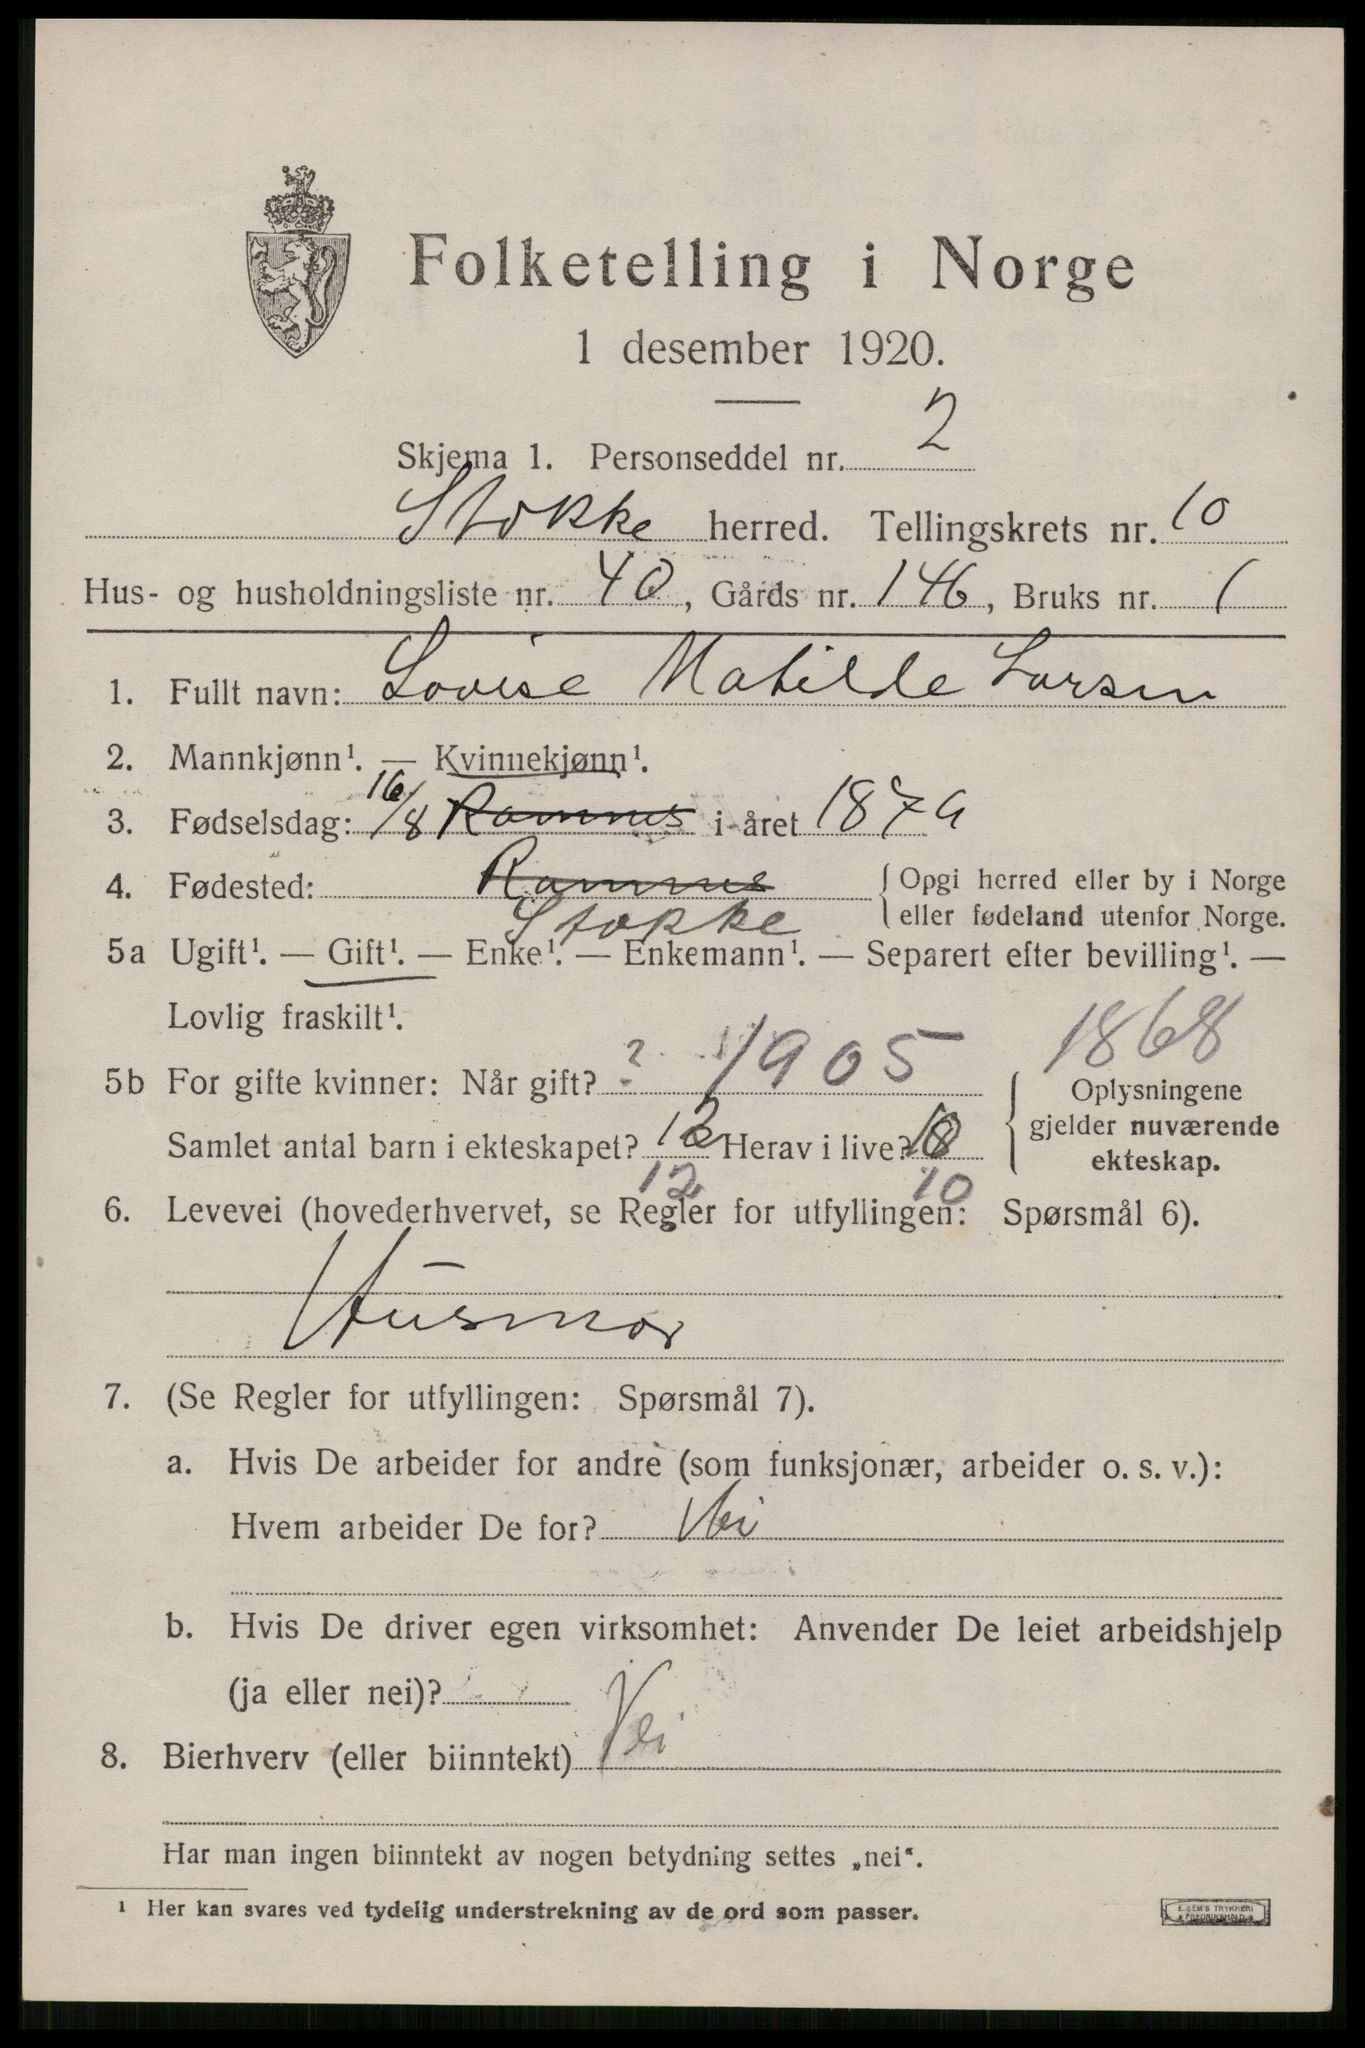 Folketelling i Norge
1 desember 1920.
Skjema 1. Personseddel nr. 2
Stokke herred. Tellingskrets nr. 10
Hus- og husholdningsliste nr. 40, Gårds nr. 146, Bruks nr. 1
1. Fullt navn: Lovise Matilde Larsen
2. Mannkjønn¹. — Kvinnekjønn¹.
3. Fødselsdag: 16/8 Ramnes i året 1879
4. Fødested: Ramnes { Opgi herred eller by i Norge
Stokke eller fødeland utenfor Norge.
5a Ugift¹. — Gift¹. — Enke¹. — Enkemann¹. — Separert efter bevilling¹. —
Lovlig fraskilt¹.
1868
5b For gifte kvinner: Når gift? ? 1905 Oplysningene
Samlet antal barn i ekteskapet? 12 Herav i live? 10 gjelder nuværende
12 10 ekteskap.
6. Levevei (hovederhvervet, se Regler for utfyllingen: Spørsmål 6).
Husmor
7. (Se Regler for utfyllingen: Spørsmål 7).
a. Hvis De arbeider for andre (som funksjonær, arbeider o. s. v.):
Hvem arbeider De for? Nei
b. Hvis De driver egen virksomhet: Anvender De leiet arbeidshjelp
(ja eller nei)?
8. Bierhverv (eller biinntekt) Nei
Har man ingen biinntekt av nogen betydning settes „nei“.
¹ Her kan svares ved tydelig understrekning av de ord som passer.